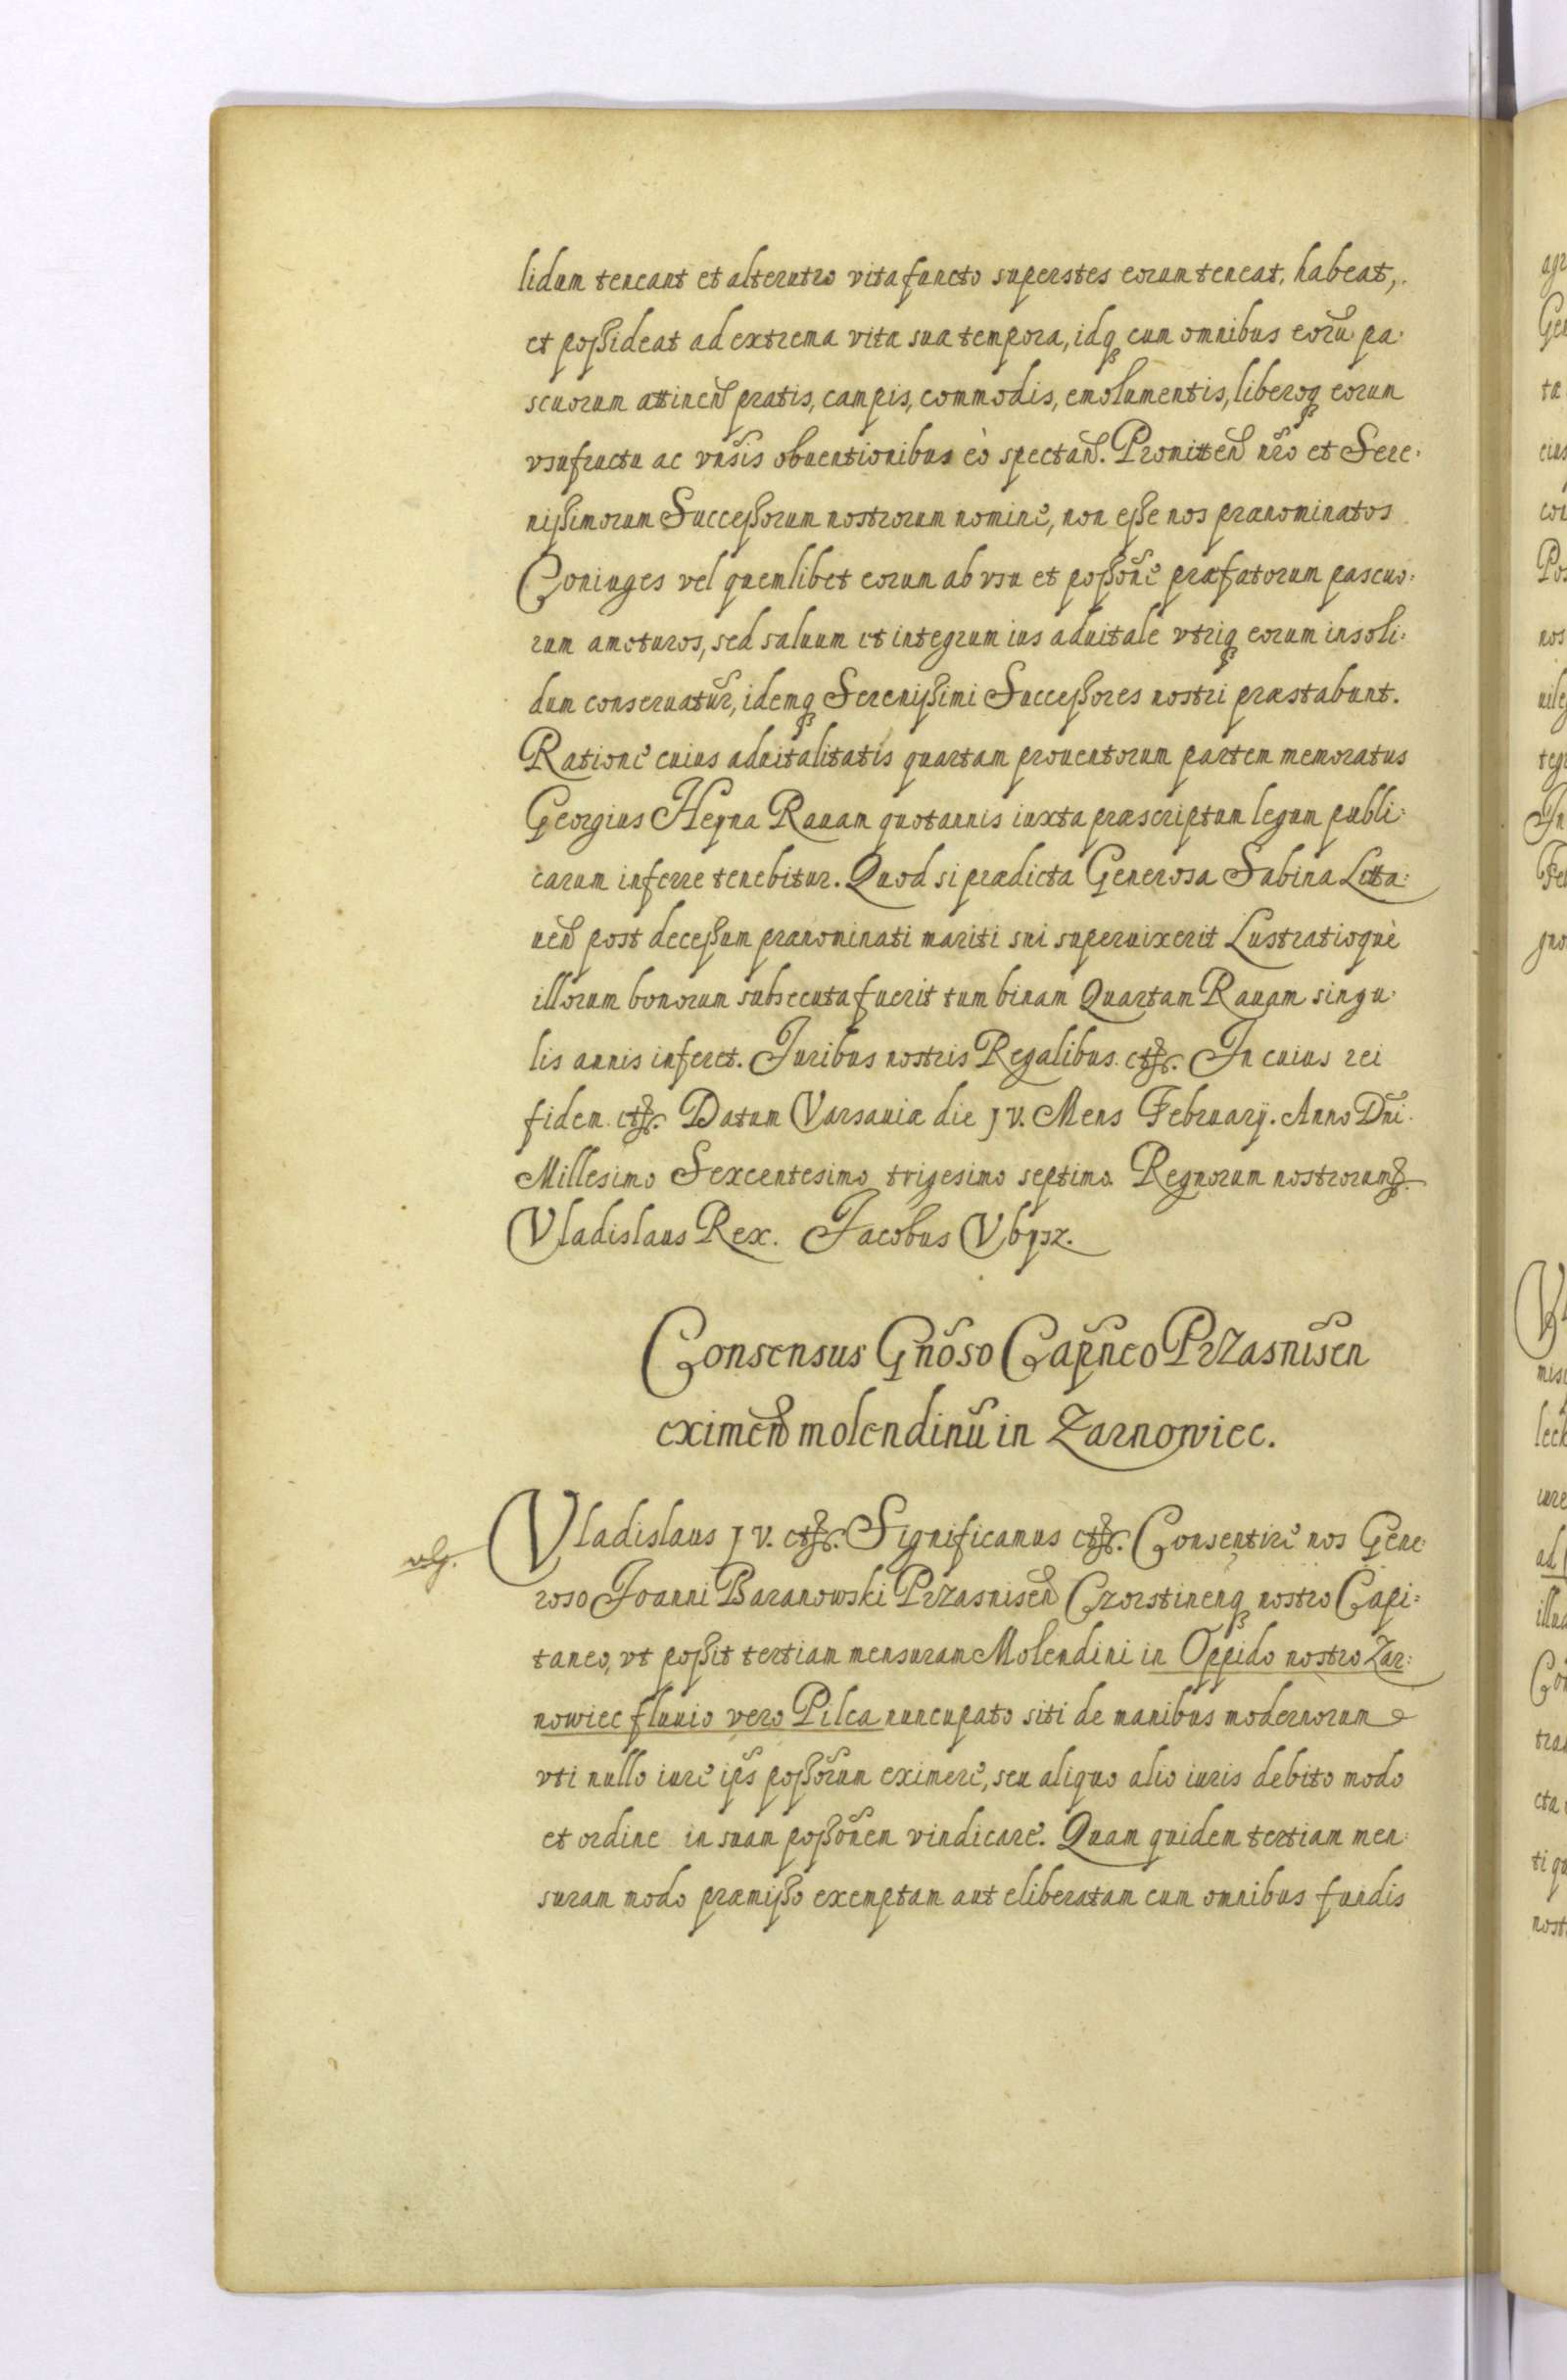 lidum teneant et alterutro vita functo superstes eorum teneat, habeat,
et possideat ad extrema vitæ suæ tempora, idq cum omnibus eorũ pa:
scuorum attineñ pratis, campis, commodis, emolumentis, liberoq eorum
vsufructu ac vnisis obuentionibus eò spectañ. Promitteñ nr̃o et Sere:
nissimorum Successorum nostrorum nomine, non esse nos prænominatos
Coniuges vel quemlibet eorum ab vsu et possõne præfatorum pascuo:
rum amoturos, sed saluum et integrum ius aduitale vtriq eorum insoli:
dum conseruatur̃, idemq Serenissimi Successores nostri præstabunt.
Ratione cuius aduitalitatis quartam prouentorum partem memoratus
Georgius Heyna Rauam quotannis iuxta præscriptum legum publi:
carum inferre tenebitur. Quod si prædicta Generosa Sabina Litta:
ueñ post decessum prænominati mariti sui superuixerit Lustratioquè
illorum bonorum subsecuta fuerit tum binam Quartam Rauam singu:
lis annis inferet. Juribus nostris Regalibus. ett. In cuius rei
fidem. ett. Datum Varsauiæ die JV. Mens February. Anno Dñi.
Millesimo Sexcentesimo trigesimo septimo. Regnorum nostrorum
Vladislaus Rex. Jacobus Vbysz.
Consensus Gñoso Capñeo Przasnisen
eximeñ molendinũ in Zarnowiec.
Vladislaus JV. ett. Significamus ett. Consentire nos Gene:
roso Joanni Baranowski Przasniseñ Czorstinenq nostro Capi:
taneo, vt possit tertiam mensuram Molendini in Oppido nostro Zar:
nowiec fluuio vero Pilca nuncupato siti de manibus modernorum
vti nullo iure ip̃s possõrum eximere, seu aliquo alio iuris debito modo
et ordine in suam possõnem vindicare. Quam quidem tertiam men:
suram modo præmisso exemptam aut eliberatam cum omnibus fundis